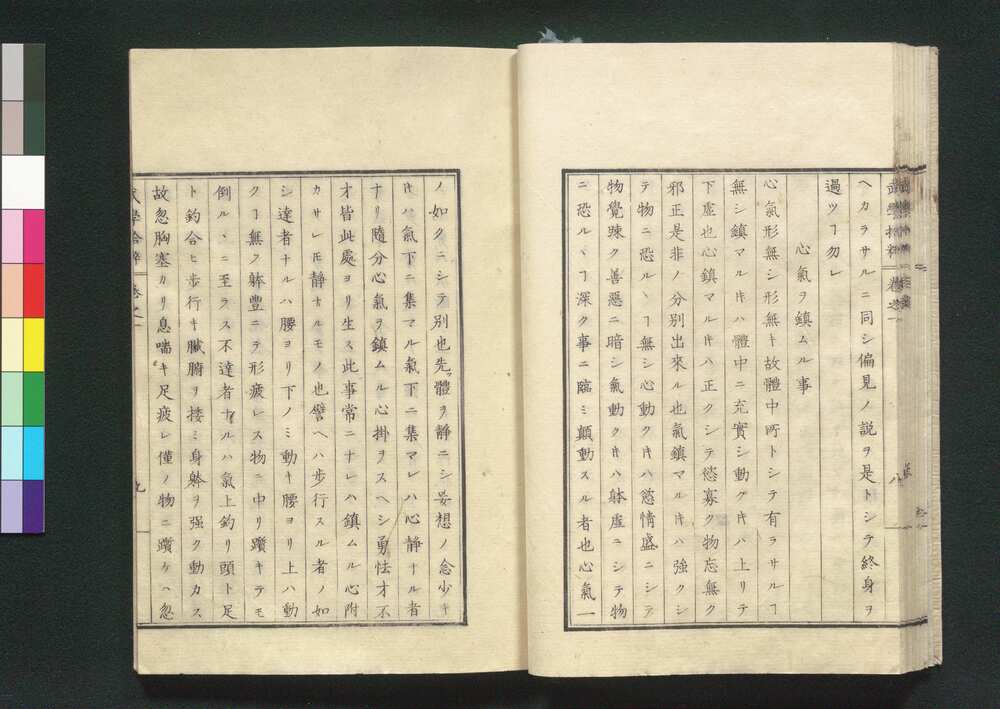 ヘカラサルニ同シ偏見ノ説ヲ是トシテ終身ヲ
過ツヿ勿レ
心氣ヲ鎮ムル事
心氣形無シ形無キ故體中所トシテ有ラサルヿ
無シ鎮マルキハ體中ニ充實シ動クキハ上リテ
下虚也心鎮マルキハ正クシテ慾寡ク物忘無ク
邪正是非ノ分別出來ル也氣鎮マルキハ強クシ
テ物ニ恐ルヽヿ無シ心動クキハ慾情盛ニシテ
物覺踈ク善惡ニ暗シ氣動クキハ躰虚ニシテ物
ニ恐ルヽヿ深ク事ニ臨ミ顛動スル者也心氣一
ノ如クニシテ別也先體ヲ静ニシ妄想ノ念少キ
キハ氣下ニ集マル氣下ニ集マレハ心静ナル者
ナリ隨分心氣ヲ鎮ムル心掛ヲスヘシ勇怯才不
才皆此處ヨリ生ス此事常ニナレハ鎮ムル心附
カサレ𪜈静ナルモノ也譬ヘハ歩行スル者ノ如
シ達者ナルハ腰ヨリ下ノミ動キ腰ヨリ上ハ動
クヿ無ク躰豊ニテ形疲レス物ニ中リ躓キテモ
倒ルヽニ至ラス不達者ナルハ氣上釣リ頭ト足
ト釣合ヒ歩行キ臓腑ヲ揉ミ身躰ヲ强ク動カス
故忽胸塞カリ息喘キ足疲レ僅ノ物ニ躓ケハ忽
九